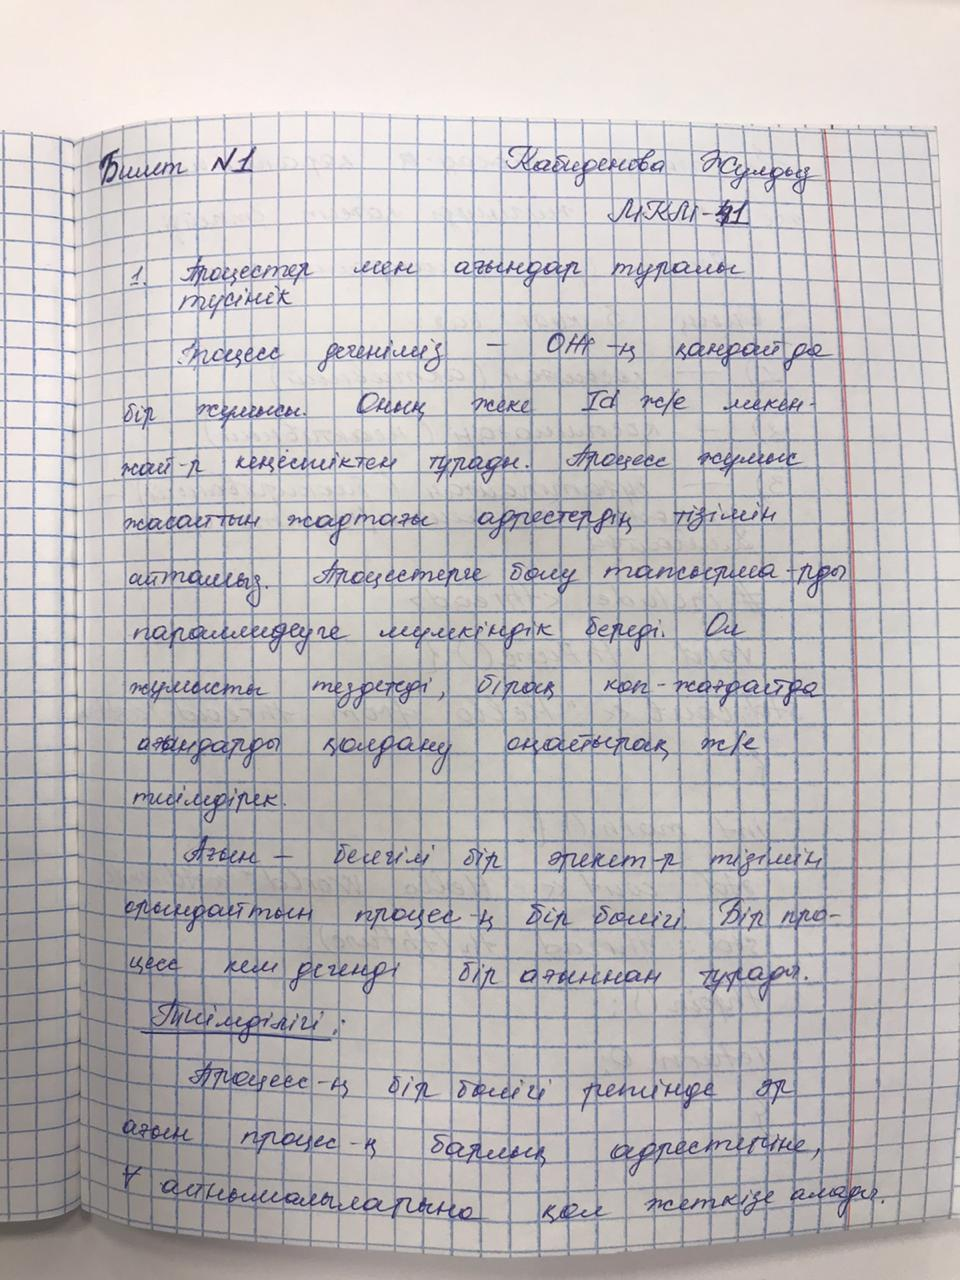 Билет №1 Кабиденова Жулдыз
МКМ-41
1. Процестер мен ағындар туралы
түсінік
Процесс дегеніміз – ОЖ-ң қандай да
бір жұмысы. Оның жеке Id ж/е мекен-
жай-р кеңістіктен тұрады. Процесс жұмыс
жасайтын жадтағы адрестердің тізімін
айтамыз. Процестерге бөлу тапсырма-рды
параллидеуге мүмкіндік береді. Ол
жұмысты тездетеді, бірақ көп-жағдайда
ағындарды қолдану оңайырақ ж/е
тиімдірек.
Ағын – белгілі бір әрекет-р тізімін
орындайтын процес-ң бір бөлігі. Бір про-
цесс кем дегенді бір ағыннан тұрады.
Тиімділігі:
Процесс-ң бір бөлігі ретінде әр
ағын процес-ң барлық адрестеріне,
∀ айнымалыларына қол жеткізе алады.